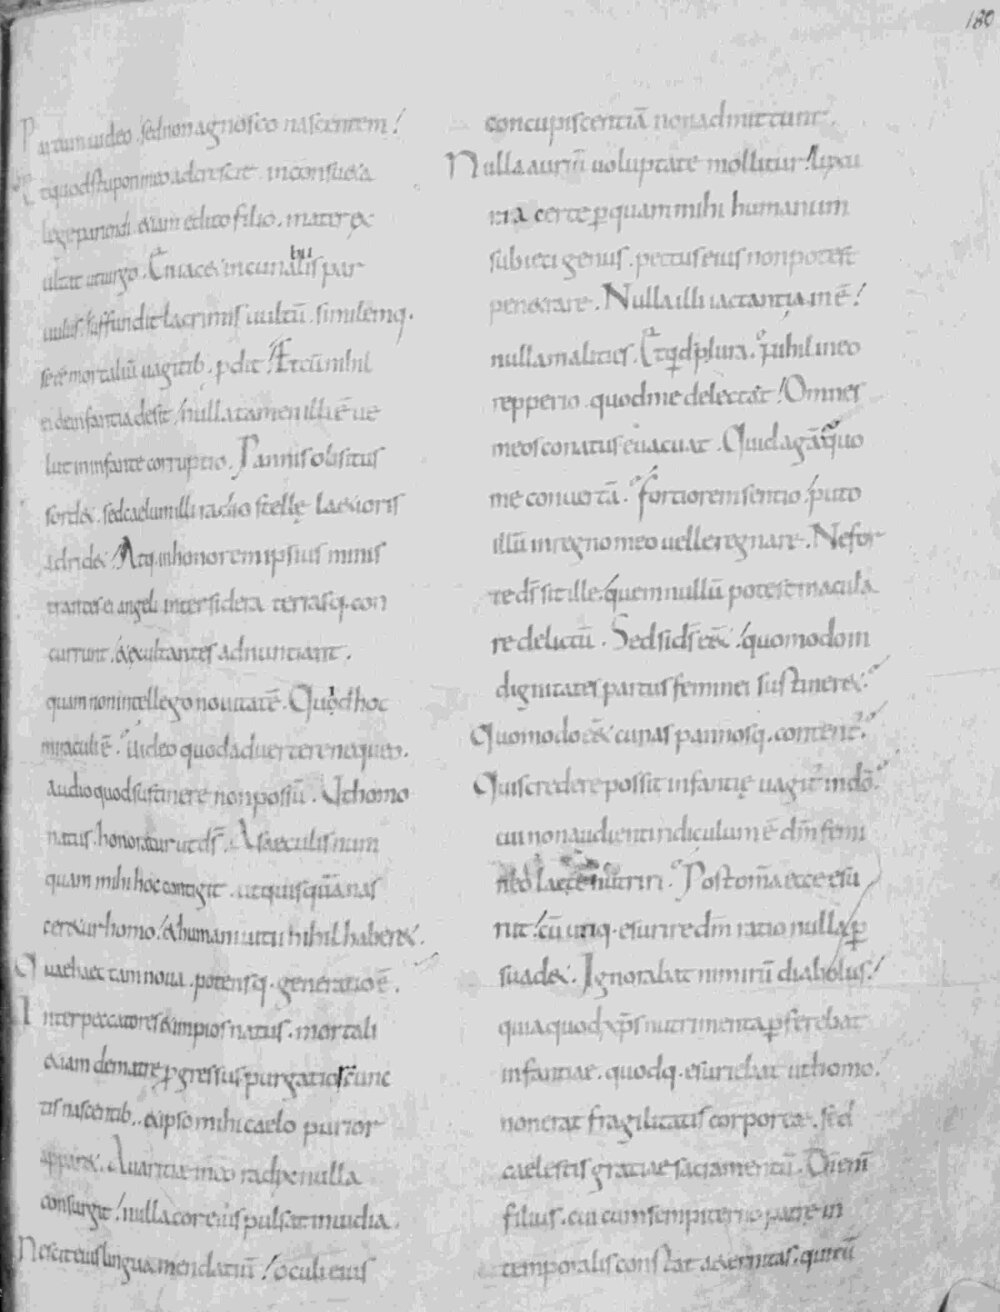 180
Partum uideo. sed non agnosco nascentem!
Et quod stuponi meo adcrescit. inconsueta
lege pariendi. etiam edito filio. mater ex
ultat uirgo. Et iacet in cunabulis par
uulus. suffundit lacrimis uultū. similemq.
se cē mortaliū uagitib. pdit. Et cū nihil
ei de infantia desit / nulla tamen illi ē ue
lut in infante corruptio. Pannis obsitus
sordet. sed caelum illi radio stellę laetioris
adridet. Atq. in honorem ipsius minis
trantes ei angeli inter sidera terrasq. con
currunt. & exultantes adnuntiant.
quam non intellego nouitatē. Quod hoc
miraculi ē. uideo quod aduertere nequeo.
Audio quod sustinere non possū. Ut homo
natus. honoratur ut ds̄. A saeculis num
quam mihi hoc contigit. ut quisquā nas
ceretur homo / & humani uitii nihil haberet.
Quae haec tam noua. potensq. generatio ē.
Inter peccatores & impios natus. mortali
etiam de matre pgressus purgatior cunc
tis nascentib. & ipso mihi caelo purior
apparet. Auaritia in eo radice nulla
consurgit / nulla cor eius pulsat inuidia.
Nescit eius lingua mendatiū / oculi eius
concupiscentiā non admittunt.
Nulla auriū uoluptate mollitur / luxu
ria certe p quam mihi humanum
subieci genus. pectus eius non potest
penetrare. Nulla illi iactantia in ē /
nulla malities. Et qd plura. nihil in eo
repperio. quod me delectat / Omnes
meos conatus euacuat. Quid agā quo
me conuertā. fortiorem sentio. puto
illū in regno meo uelle regnare. Ne for
te ds̄ sit ille. quem nullū potest macula
re delictū. Sed si ds̄ eēt / quomodo in
dignitates partus feminei sustineret.
Quomodo eēt cunas pannosq. content'.
Quis credere possit infantię uagit' in dō.
cui non audienti ridiculum ē dm̄ femi
neo lacte nutriri. Postom̄a ecce esu
rit / cū utiq. esurire dm̄ ratio nulla p
suadet. Ignorabat nimirū diabolus /
quia quod xp̄s nutrimenta pferebat
infantiae. quodq. esuriebat ut homo.
non erat fragilitatis corporea. sed
caelestis gratiae sacramentū. Om̄em̄
filius. cui cum sempiterno patre in
temporalis constat aeternitas. qui cū